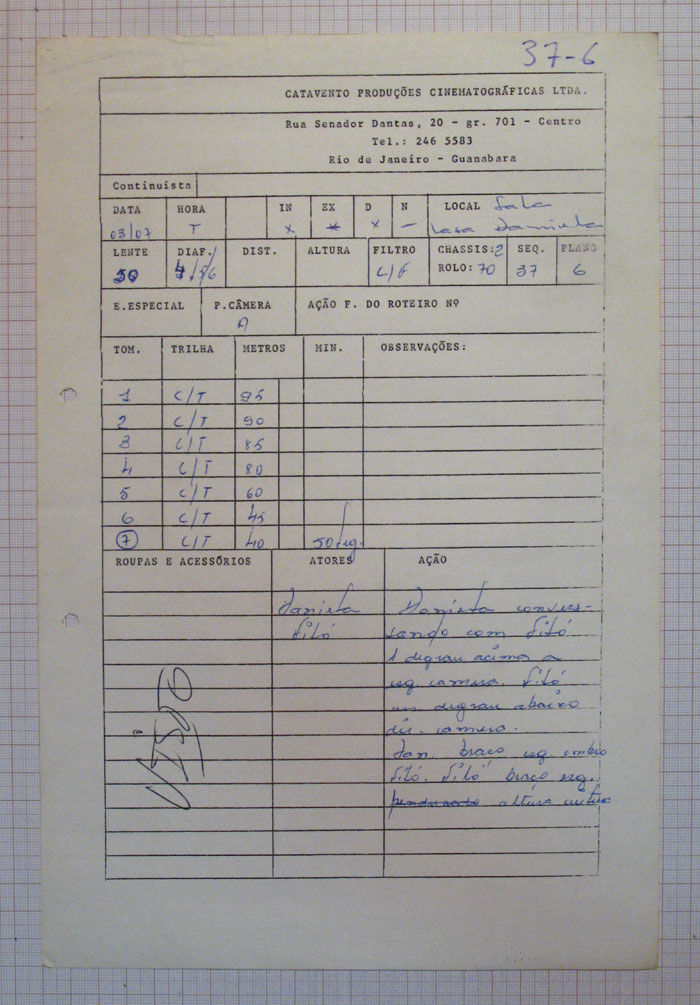 37-6
CATAVENTO PRODUÇÕES CINEMATOGRÁFICAS LTDA.
Rua Senador Dantas, 20 - gr. 701 - Centro
Tel.: 246 5583
Rio de Janeiro - Guanabara
Continuista
DATA HORA IN EX D N LOCAL Sala
03/07 T x x x — Casa Daniela
LENTE DIAF. DIST. ALTURA FILTRO CHASSIS: 2 SEQ. PLANO
50 C/F ROLO: 70 37 6
E.ESPECIAL P.CÂMERA AÇÃO F. DO ROTEIRO Nº
A
TOM. TRILHA METROS MIN. OBSERVAÇÕES:
1 C/T 95
2 C/T 90
3 C/T 85
4 C/T 80
5 C/T 60
6 C/T 45
7 C/T 40 50 seg.
ROUPAS E ACESSÓRIOS ATORES AÇÃO
Daniela Daniela conver-
Fitó sando com Fitó
1 degrau acima a
esq camera. Fitó
um degrau abaixo
dir. camera.
Dan. braço esq. ombro
Fitó. Fitó braço esq.
pendurado altura
VISTO